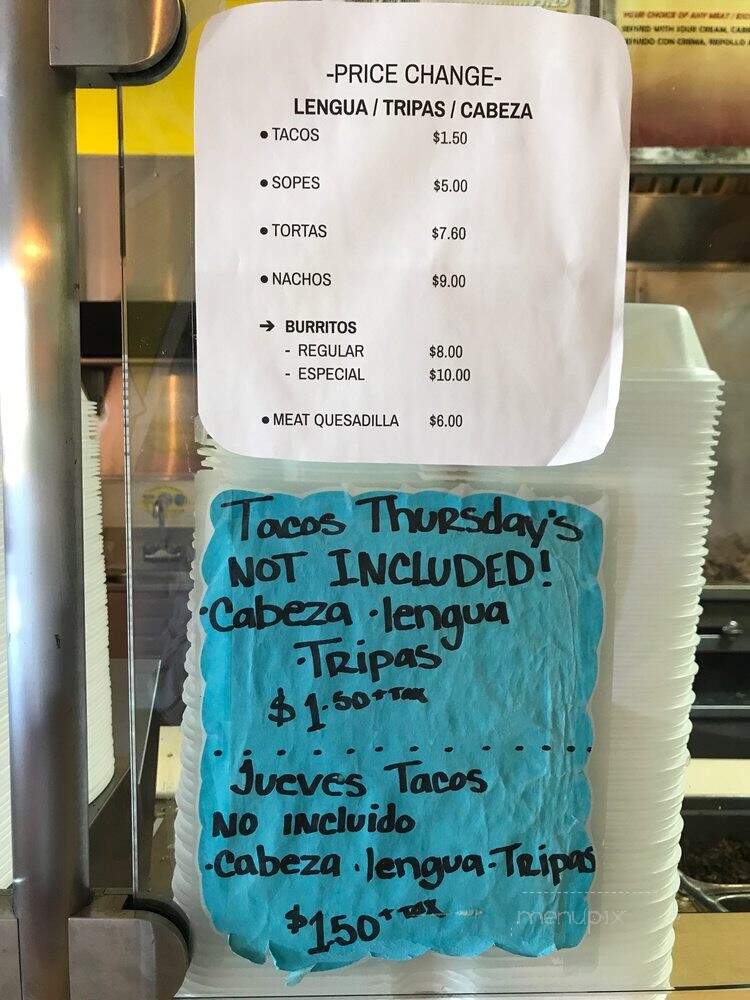 YOUR CHOICE OF ANY MEAT /
SERVED WITH SOUR CREAM,
CON CREMA, REPOLLO
-PRICE CHANGE-
LENGUA / TRIPAS / CABEZA
● TACOS $1.50
● SOPES $5.00
● TORTAS $7.60
● NACHOS $9.00
➔ BURRITOS
- REGULAR $8.00
- ESPECIAL $10.00
● MEAT QUESADILLA $6.00
Tacos Thursday's
NOT INCLUDED!
·Cabeza ·lengua
·Tripas
$1.50+Tax
Jueves Tacos
NO INCluido
·Cabeza ·lengua-Tripas
$150+TAX
menupix